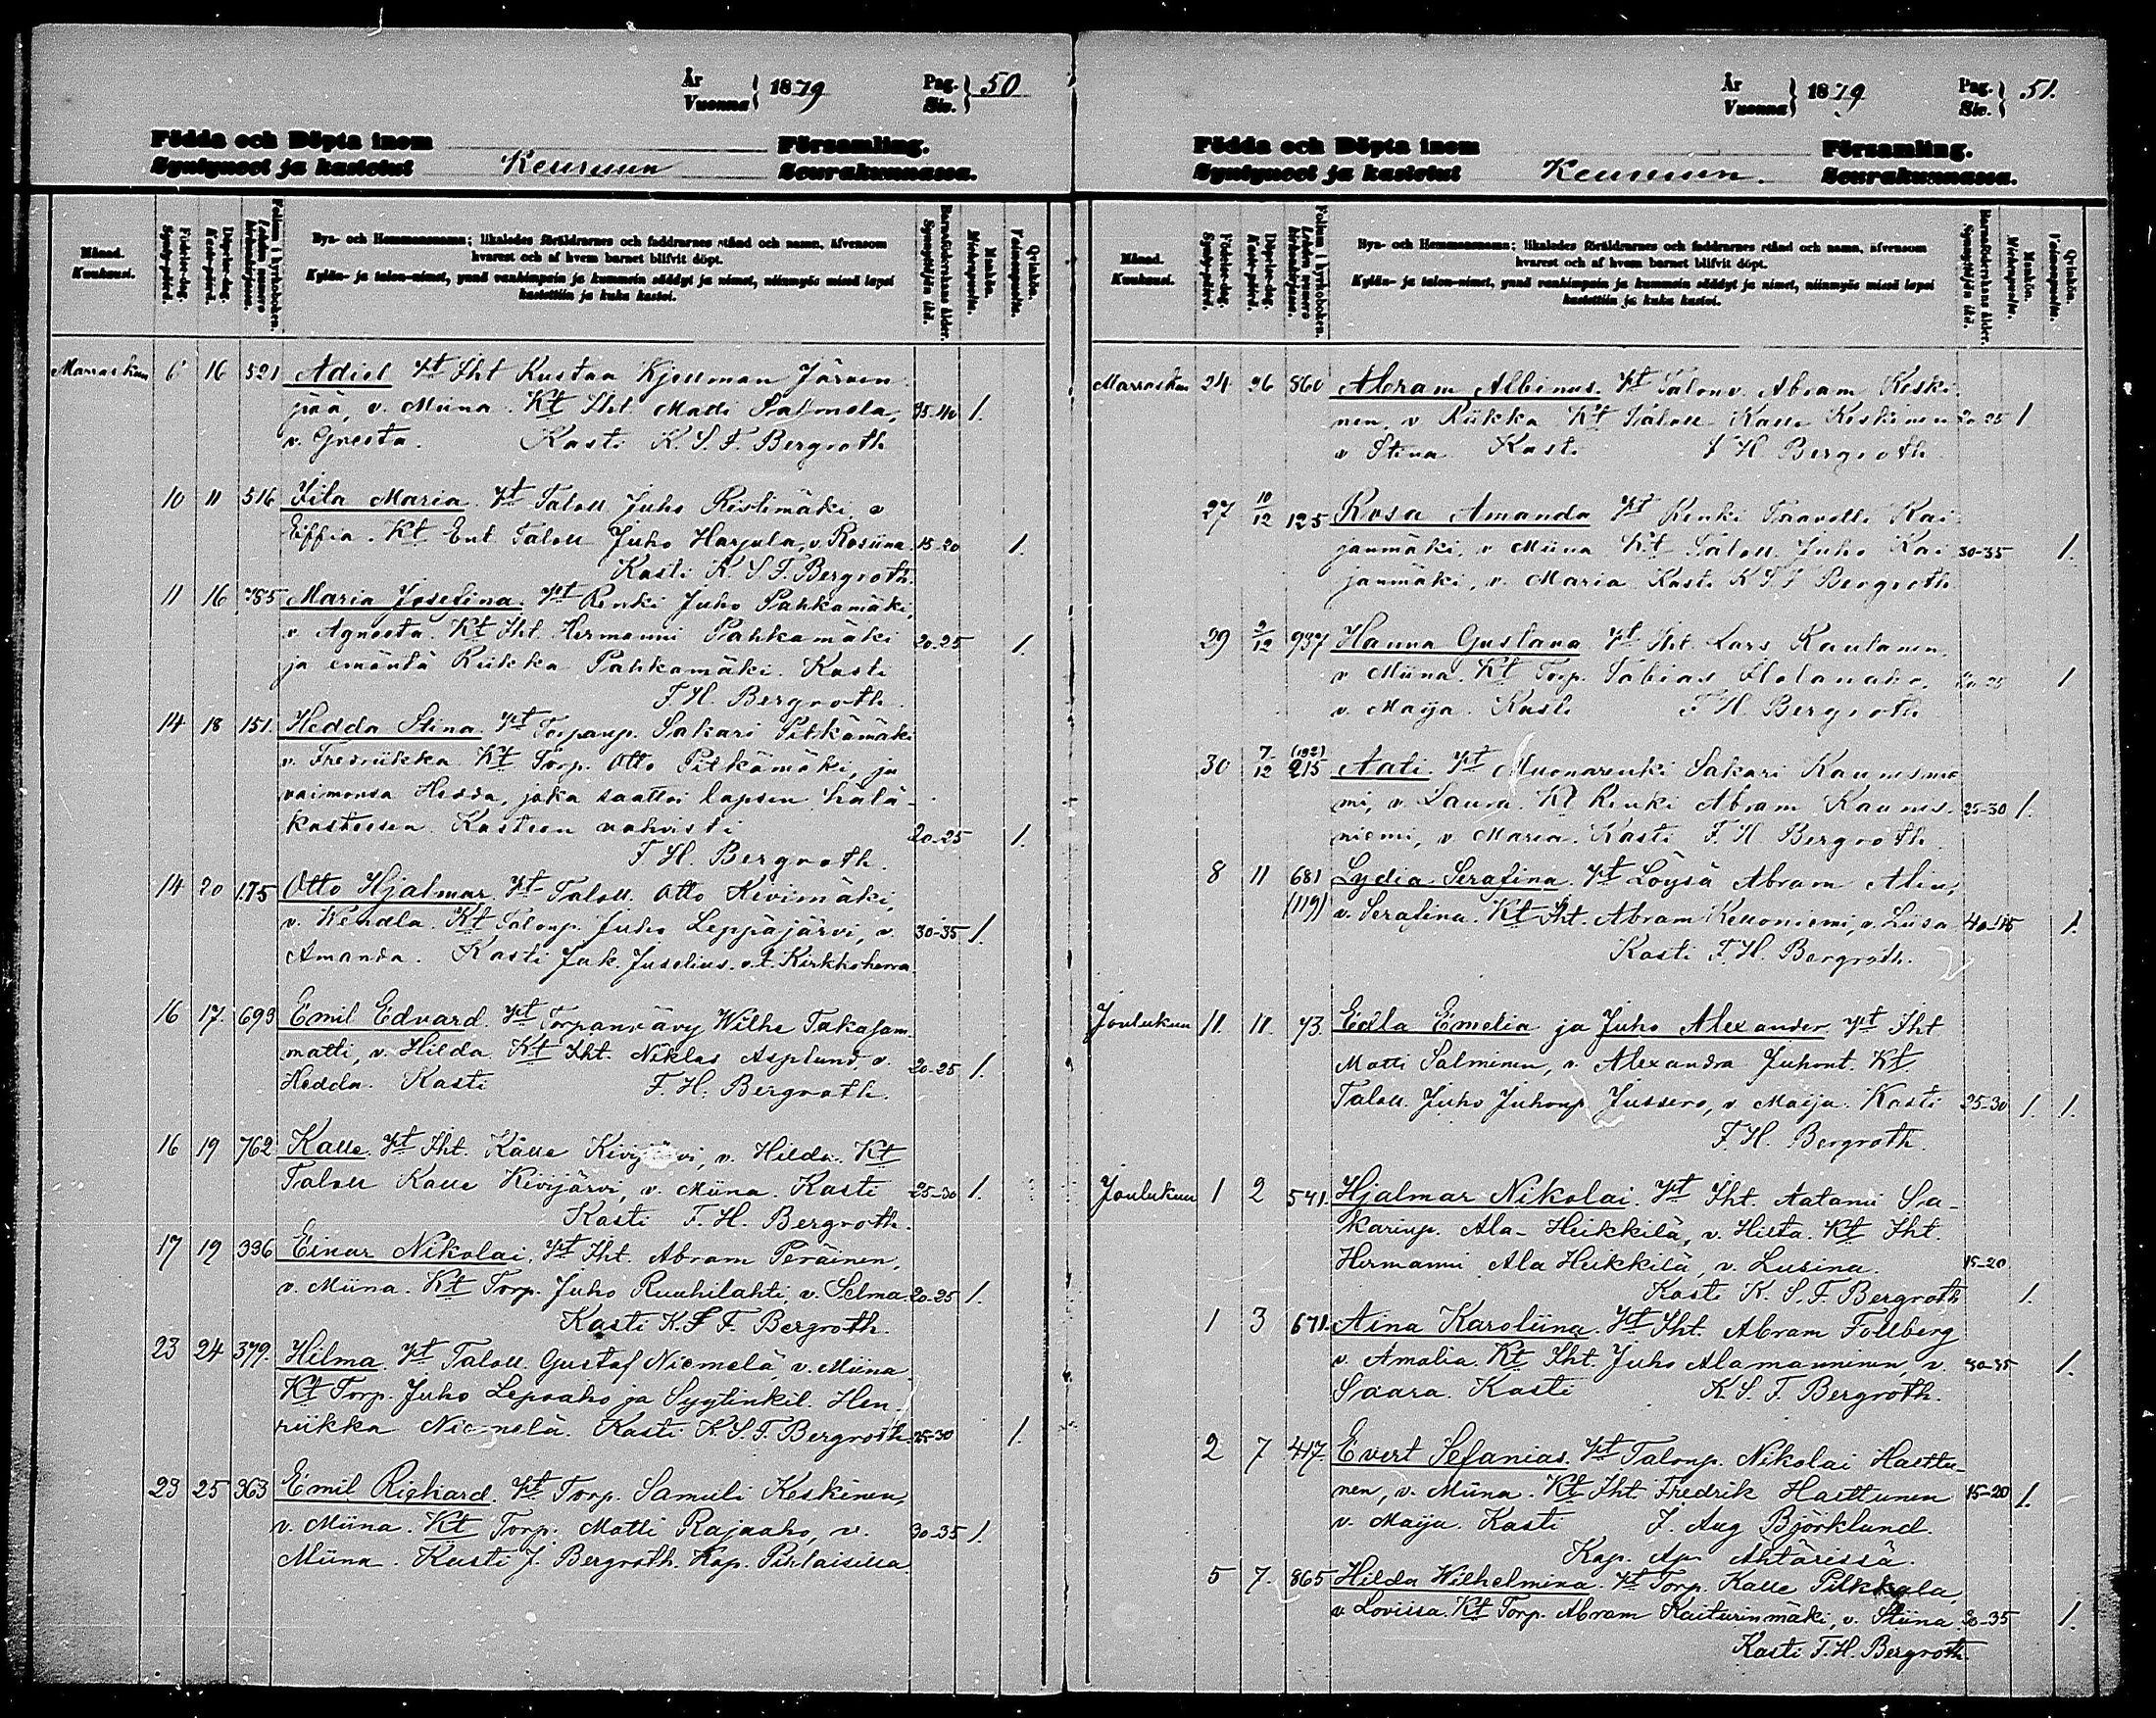 År
Vuonna } 1879
Pag.
Siv. } 50
Födda och Döpta inom Församling.
Syntyneet ja kastetut Keuruun Seurakunnassa.
Månad.
Kuukausi.
Födelse-dag.
Synty-päivä.
Döpelse-dag.
Kaste-päivä.
Folium i kyrkoboken.
Lehden numero kirkonkirjassa.
Bya- och Hemmansnamn; likaledes föräldrarnes och faddrarnes stånd och namn, äfvensom
hvarest och af hvem barnet blifvit döpt.
Kylän- ja talon-nimet, ynnä vanhimpain ja kummein säädyt ja nimet, niinmyös missä lapsi
kastettiin ja kuka kastoi.
Barnaföderskans ålder.
Synnyttäjän ikä.
Mankön.
Miehenpuolta.
Qvinkön.
Vaimonpuolta.
Marraskuu 6 16 521 Adiel Vt Iht Kustaa Kjellman Järven
pää, v. Miina. Kt Iht. Matti Salmela, 35-40 1.
v. Greeta. Kasti K. S. F. Bergroth
10 11 516 Iita Maria Vt Taloll Juho Ristimäki, v
Eiffia. Kt Ent Taloll Juho Harjula, v. Rosiina 15-20 1.
Kasti K. S. F. Bergroth.
11 16 785 Maria Josefina. Vt Renki Juho Pahkamäki,
v Agneeta. Kt Iht. Hermanni Pahkamäki 20-25 1.
ja emäntä Riikka Pahkamäki. Kasti
F. H. Bergroth.
14 18 151. Hedda Stina. Vt Torpanp. Sakari Pitkämäki
v. Fredriikka Kt Torp. Otto Pitkämäki, ja
vaimonsa Hedda, joka saattoi lapsen hätä-
kasteesen. Kasteen vahvisti 20-25 1.
F. H. Bergroth.
14 20 175 Otto Hjalmar. Vt Taloll. Otto Kivimäki,
v. Wendla. Kt Talonp. Juho Leppäjärvi, v. 30-35 1.
Amanda. Kasti Jak. Juselius. v.t. Kirkkoherra.
16 17. 693 Emil Edvard. Vt Torpanvävy Wilhe Takalam
matti, v. Hilda Kt Iht. Niklas Asplund, v. 20-25 1.
Hedda. Kasti F. H. Bergroth.
16 19 762 Kalle. Vt Iht. Kalle Kivijärvi, v. Hilda. Kt
Taloll Kalle Kivijärvi, v. Miina. Kasti 25-30 1.
Kasti F. H. Bergroth.
17 19 336 Einar Nikolai. Vt Iht. Abram Peräinen,
v. Miina. Kt Torp. Juho Ruuhilahti, v. Selma. 20-25 1.
Kasti K. S F. Bergroth.
23 24 379. Hilma. Vt Taloll. Gustaf Niemelä, v. Miina.
Kt Torp. Juho Lepoaho ja Syytinkil. Hen
riikka Niemelä. Kasti K. S. F. Bergroth. 25-30 1.
23 25 363 Emil Richard. Vt Torp. Samuli Keskinen,
v. Miina. Kt Torp. Matti Rajaaho, v. 30-35 1.
Miina. Kasti J. Bergroth. Kap. Pihlaisissa.
År
Vuonna } 1879
Pag.
Siv. } 51.
Födda och Döpta inom Församling.
Syntyneet ja kastetut Keuruun. Seurakunnassa.
Månad.
Kuukausi.
Födelse-dag.
Synty-päivä.
Döpelse-dag.
Kaste-päivä.
Folium i kyrkoboken.
Lehden numero kirkonkirjassa.
Bya- och Hemmansnamn; likaledes föräldrarnes och faddrarnes stånd och namn, äfvensom
hvarest och af hvem barnet blifvit döpt.
Kylän- ja talon-nimet, ynnä vanhimpain ja kummein säädyt ja nimet, niinmyös missä lapsi
kastettiin ja kuka kastoi.
Barnaföderskans ålder.
Synnyttäjän ikä.
Mankön.
Miehenpuolta.
Qvinkön.
Vaimonpuolta.
Marraskuu 24 26 860 Abram Albinus. Vt Talonv. Abram Keski
nen, v Riikka Kt Taloll Kalle Keskinen 20-25 1
v Stina Kasti F H Bergroth
27 10/12 125 Rosa Amanda Vt Renki Taavetti Kai
janmäki, v Miina Kt Taloll. Juho Kai 30-35 1.
janmäki, v. Maria Kasti K S F Bergroth
29 2/12 937 Hanna Gustava Vt Iht. Lars Rautanen,
v Miina. Kt Torp. Tobias 1
v. Maija. Kasti F H Bergroth
30 7/12 (192) 215 Aati. Vt Muonarenki Sakari Kaunisnie
mi, v Laura. Kt Renki Abram Kaunis- 25-30 1.
niemi, v Maria. Kasti F. H Bergroth
8 11 681 Lydia Serafina. Vt Löysä Abram Alin,
(119) v. Serafina. Kt Iht. Abram Kelloniemi, v. Liisa 40-45 1.
Kasti F. H. Bergroth.
Joulukuu 11. 11 73. Edla Emelia ja Juho Alexander Vt Iht
Matti Salminen, v. Alexandra Juhont. Kt
Taloll. Juho Juhonp Jussero, v Maija. Kasti 25-30 1. 1.
F. H. Bergroth.
Joulukuu 1 2 541. Hjalmar Nikolai. Vt Iht. Aatami Sa-
karinp. Ala-Heikkilä, v. Hilta. Kt Iht.
Hermanni Ala Heikkilä, v. Lusina. 15-20
Kasti K. S. F. Bergroth 1.
1 3 671. Aina Karoliina. Vt Iht. Abram Follberg
v. Amalia. Kt Iht. Juho Alamanninen, v. 30-35 1.
Saara. Kasti K. S. F. Bergroth.
2 7 417. Evert Sefanias. Vt Talonp. Nikolai Hauttu-
nen, v. Miina. Kt Iht Fredrik Hauttunen 15-20 1.
v. Maija. Kasti J. Aug Björklund.
Kap. Ap. Ahtärissä.
5 7. 865 Hilda Wilhelmina. Vt Torp. Kalle Pilkkala,
v Loviisa. Kt Torp. Abram Kaiturinmäki, v. Stiina. 30-35 1.
Kasti F. H. Bergroth.